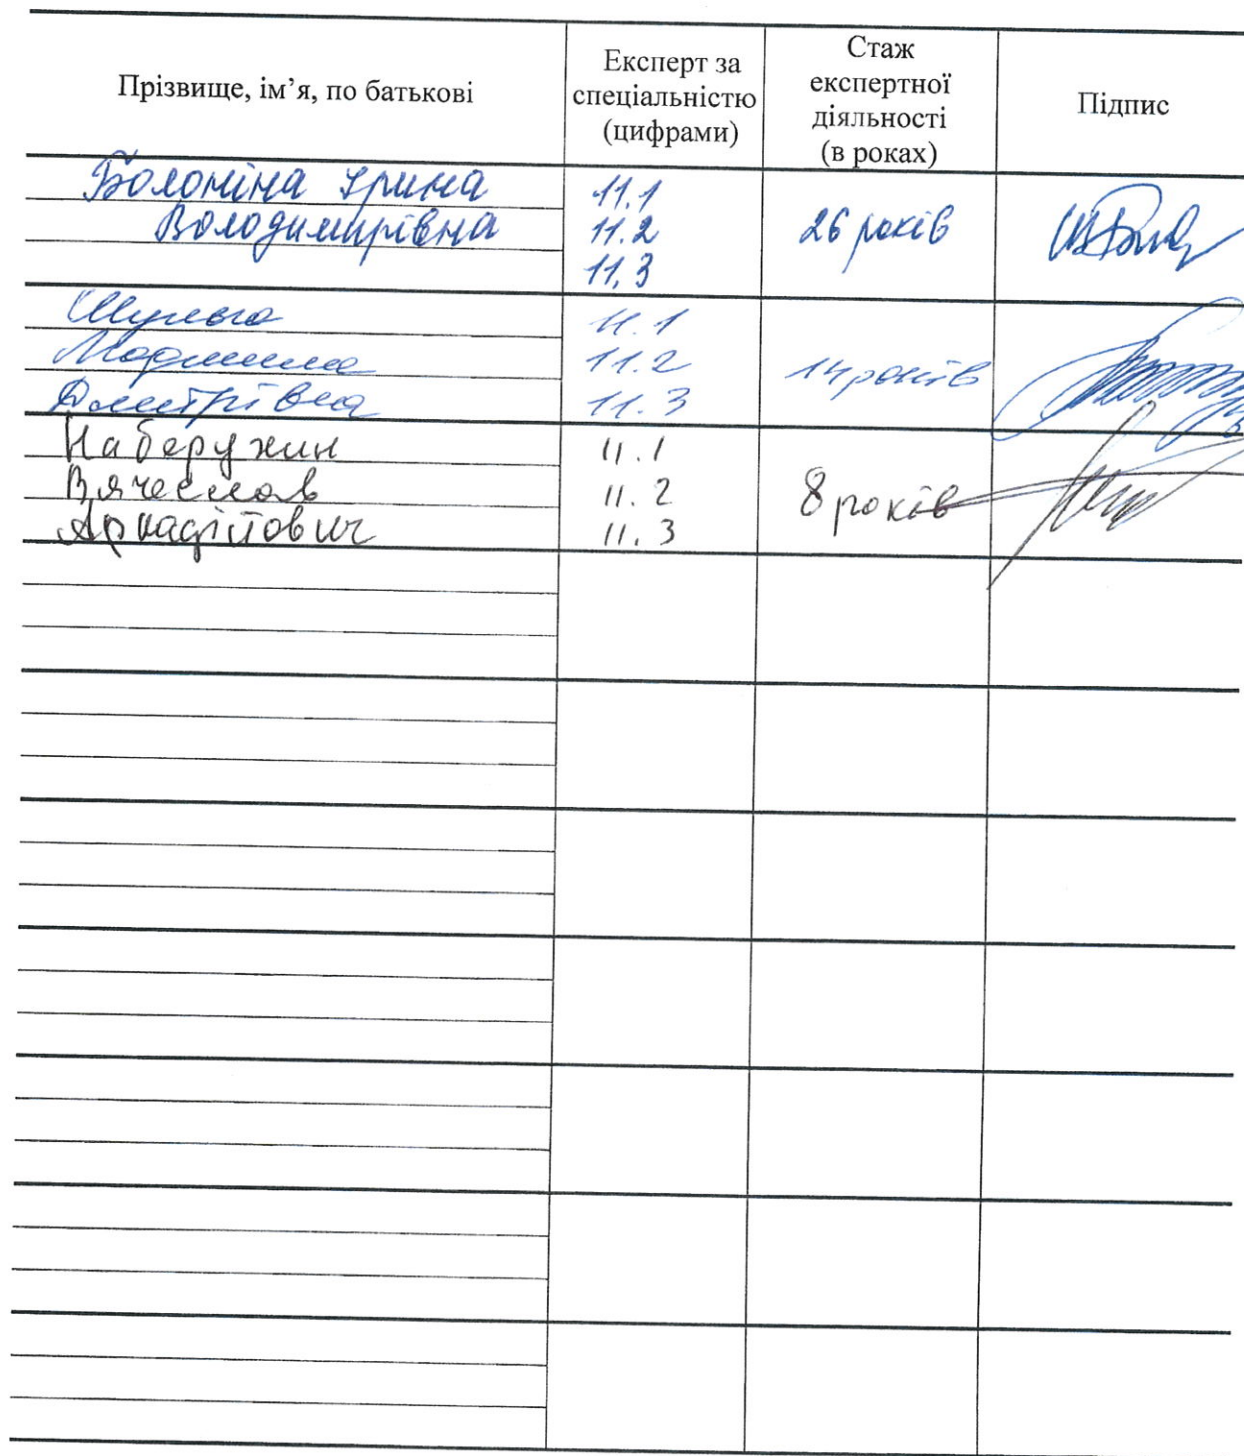 Прізвище, ім’я, по батькові
Експерт за
спеціальністю
(цифрами)
Стаж
експертної
діяльності
(в роках)
Підпис
Болоніна Ірина
Володимирівна
11.1
11.2
11.3
26 років
Шульга
Людмила
Дмитрівна
11.1
11.2
11.3
14 років
Наберужин
Вячеслав
Аркадійович
11.1
11.2
11.3
8 років